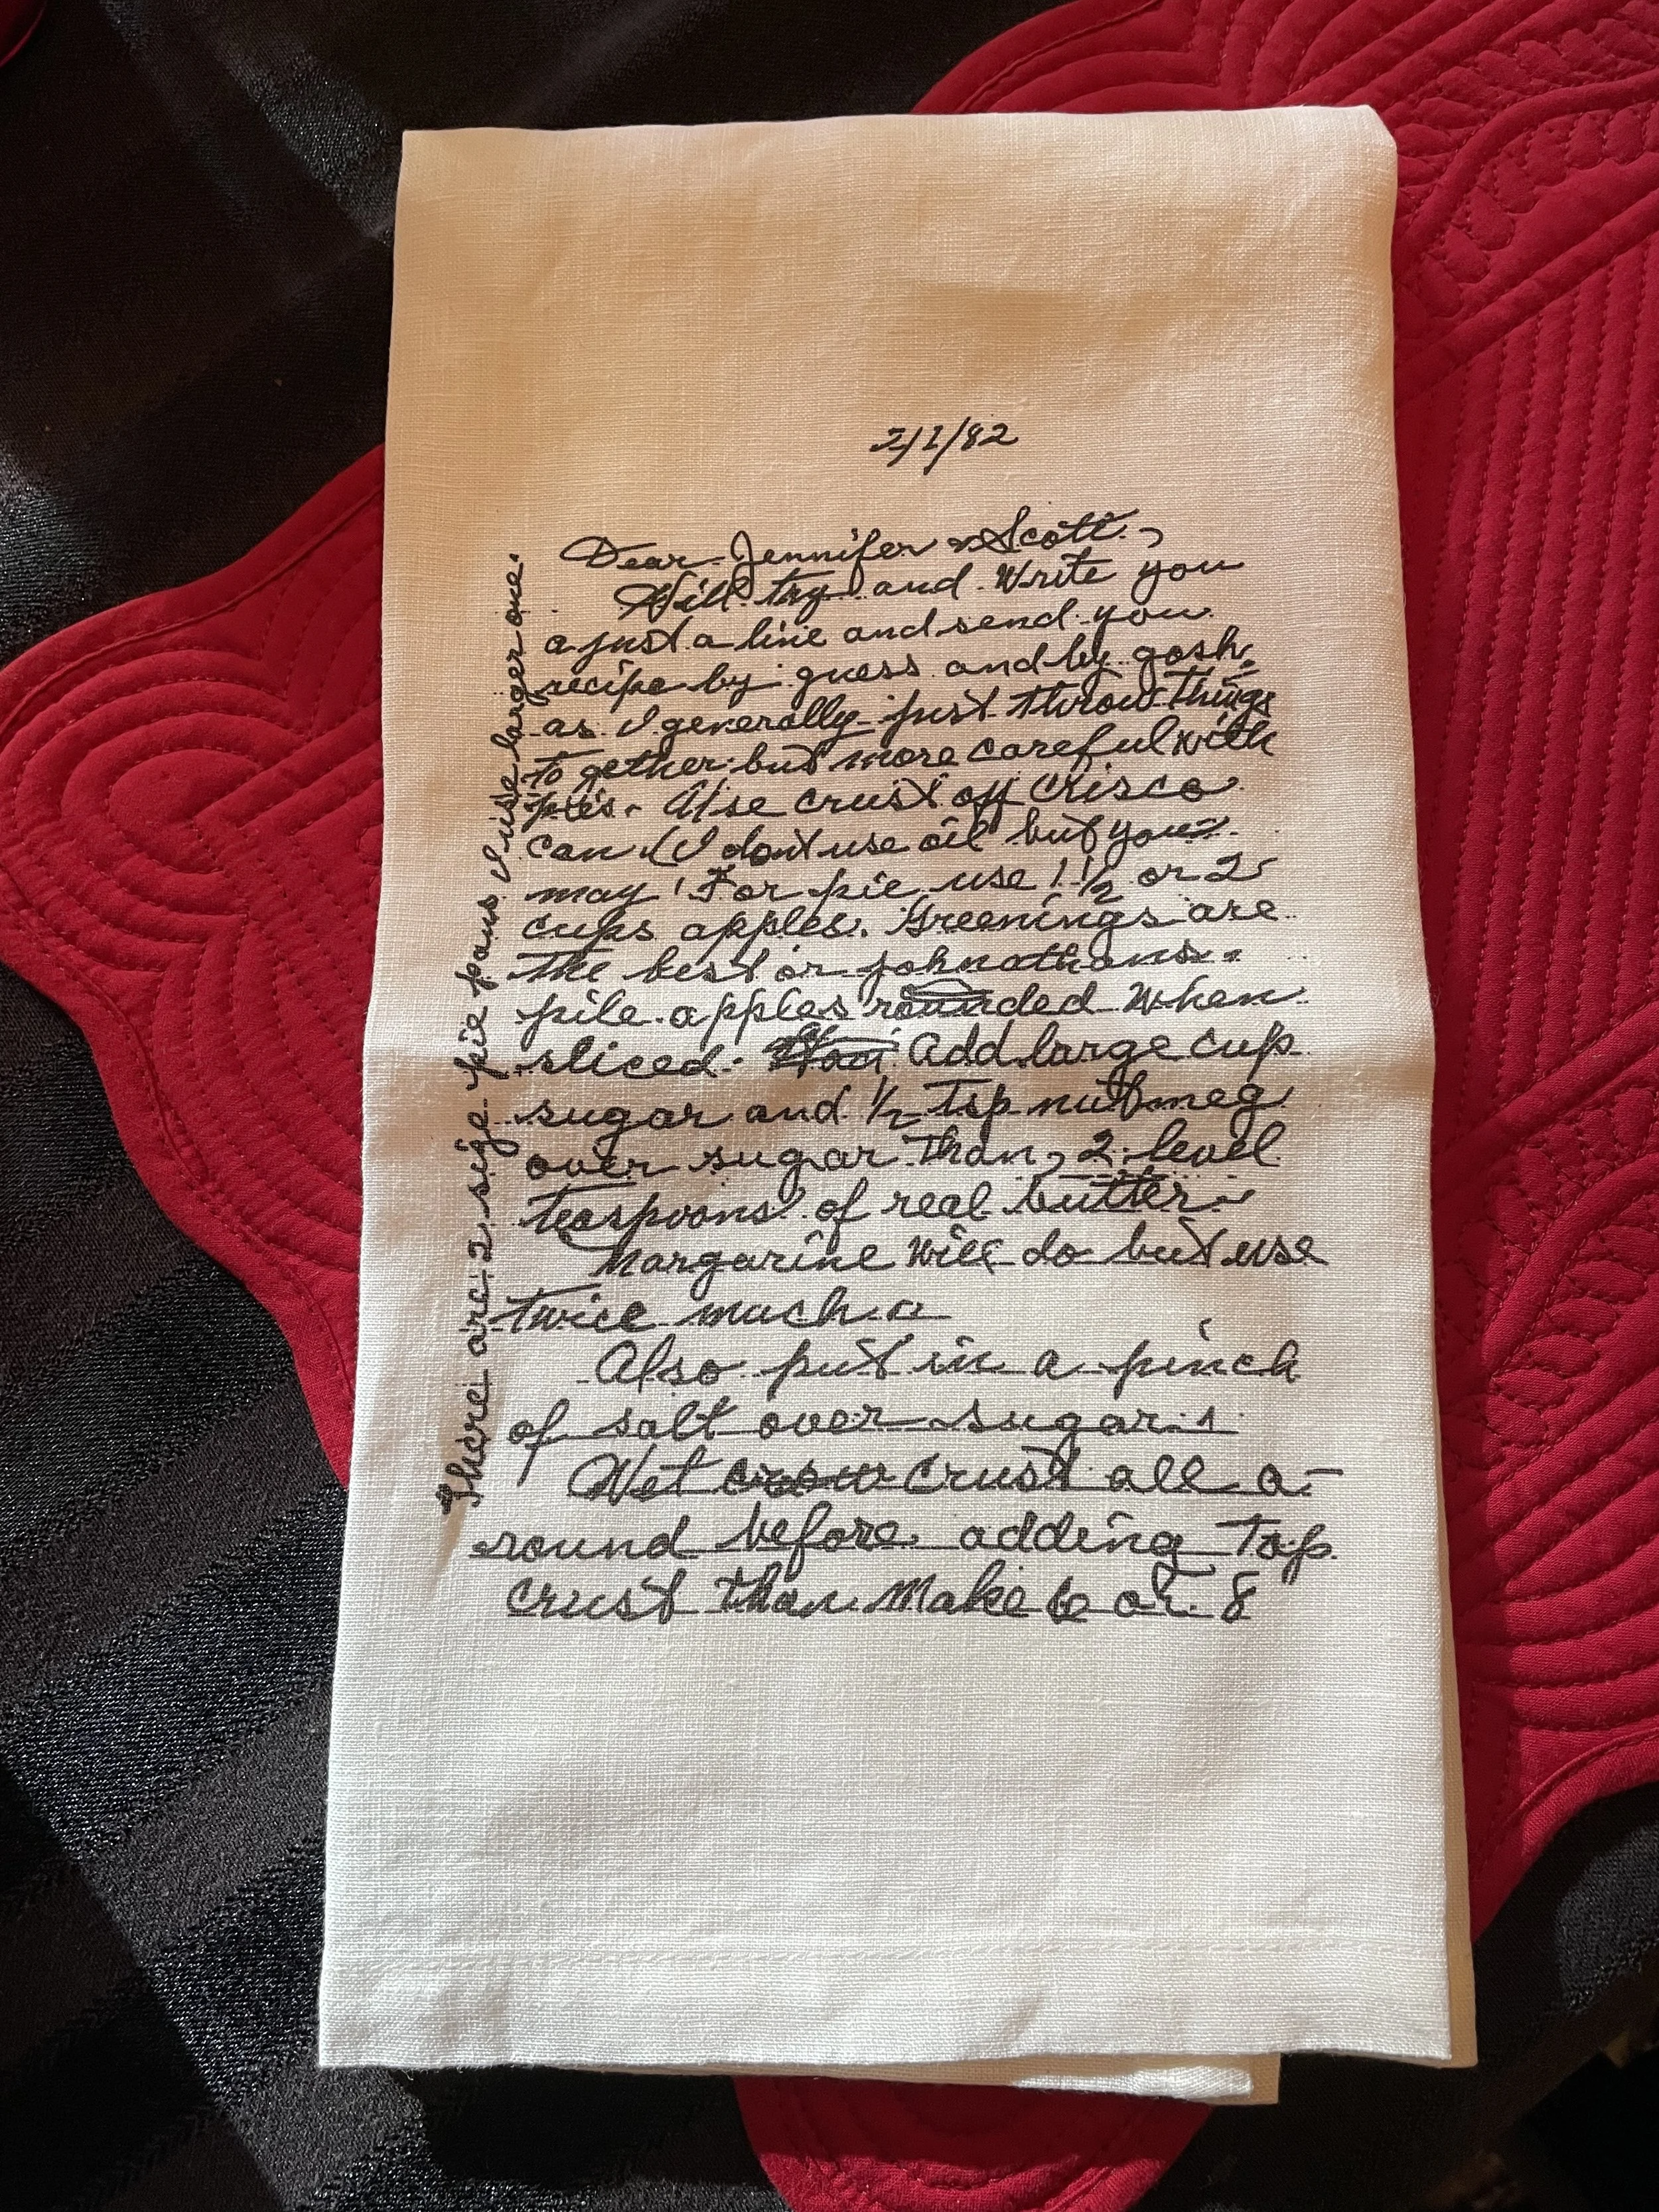 2/1/82
Dear Jennifer & Scott,
Will try and write you
a just a line and send you
recipe by guess and by gosh
as I generally just throw things
to gether but more careful with
pies. Use crust off Crisco
can (I dont use oil but you
may! For pie use 1 1/2 or 2
cups apples. Greenings are
the best or johnathans.
pile apples rounded when
sliced. Add large cup
sugar and 1/2 Tsp nutbmeg
over sugar than, 2 level
teaspoons of real butter.
Margarine will do but use
twice much a
Also put in a pinch
of salt over sugar.
Wet crust all a-
round before adding Top
crust than Make 6 or 8
There are 2 size pie pans I use larger one.